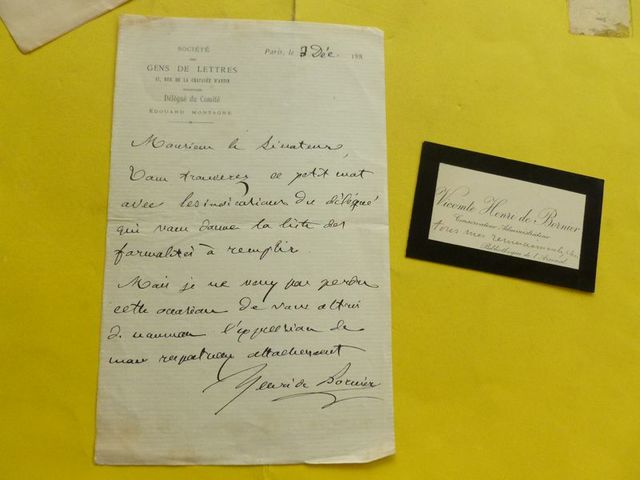 SOCIÉTÉ
DES
GENS DE LETTRES
47, RUE DE LA CHAUSSÉE D'ANTIN
Délégué du Comité
ÉDOUARD MONTAGNE
Paris, le 3 Déc 188
Monsieur le Sénateur,
Vous trouverez ce petit mot
avec les indications du délégué
qui vous donne la liste des
formalités à remplir
Mais je ne veux pas perdre
cette occasion de vous
de nouveau l'expression de
mon respectueux attachement
Henri de Bornier
Vicomte Henri de Bornier
Conservateur-Administrateur
Bibliothèque de l'Arsenal